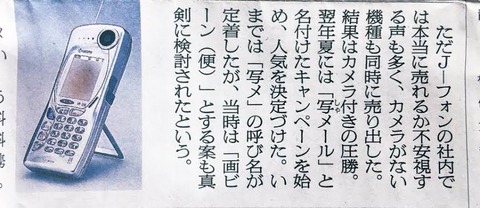 ただJ－フォンの社内で
は本当に売れるか不安視す
る声も多く、カメラがない
機種も同時に売り出した。
結果はカメラ付きの圧勝。
翌年夏には「写メール」と
名付けたキャンペーンを始
め、人気を決定づけた。い
までは「写メ」の呼び名が
定着したが、当時は「画ビ
ーン（便）」とする案も真
剣に検討されたという。